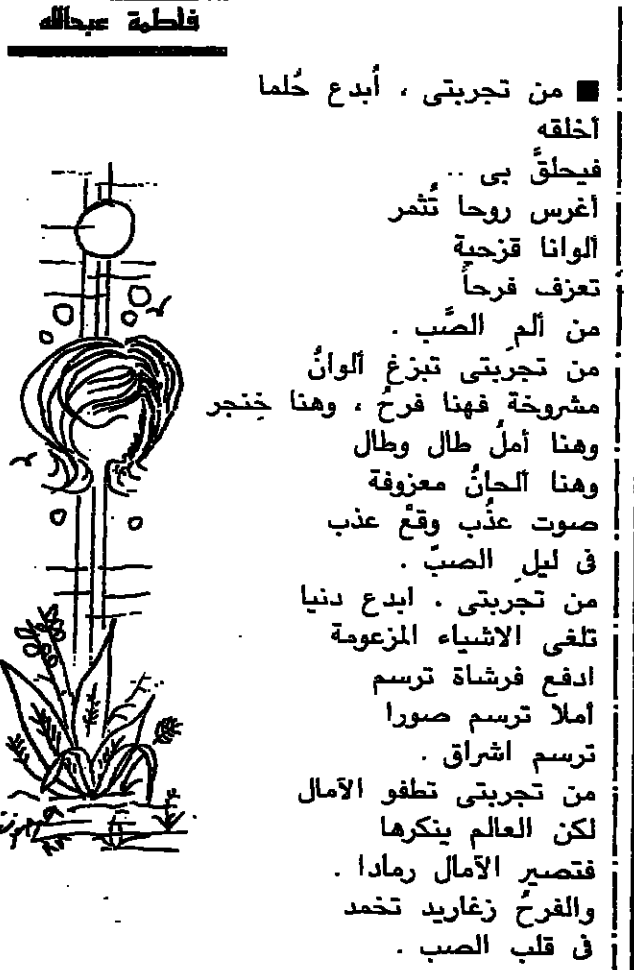 فاطمة عبدالله
■ من تجربتى ، أُبدع حُلما
أخلقه
فيحلقَّ بى ..
أغرس روحا تُثمر
ألوانا قزحية
تعزف فرحاً
من ألمِ الصَّب .
من تجربتى تبزغ ألوانُ
مشروخة فهنا فرحُ ، وهنا خِنجر
وهنا أملُ طال وطال
وهنا ألحانُ معزوفة
صوت عذُب وقعْ عذب
فى ليلِ الصبّ .
من تجربتى . ابدع دنيا
تلغى الاشياء المزعومة
ادفع فرشاة ترسم
أملا ترسم صورا
ترسم اشراق .
من تجربتى تطفو الآمال
لكن العالم ينكرها
فتصير الآمال رمادا .
والفرحُ زغاريد تخمد
فى قلب الصب .